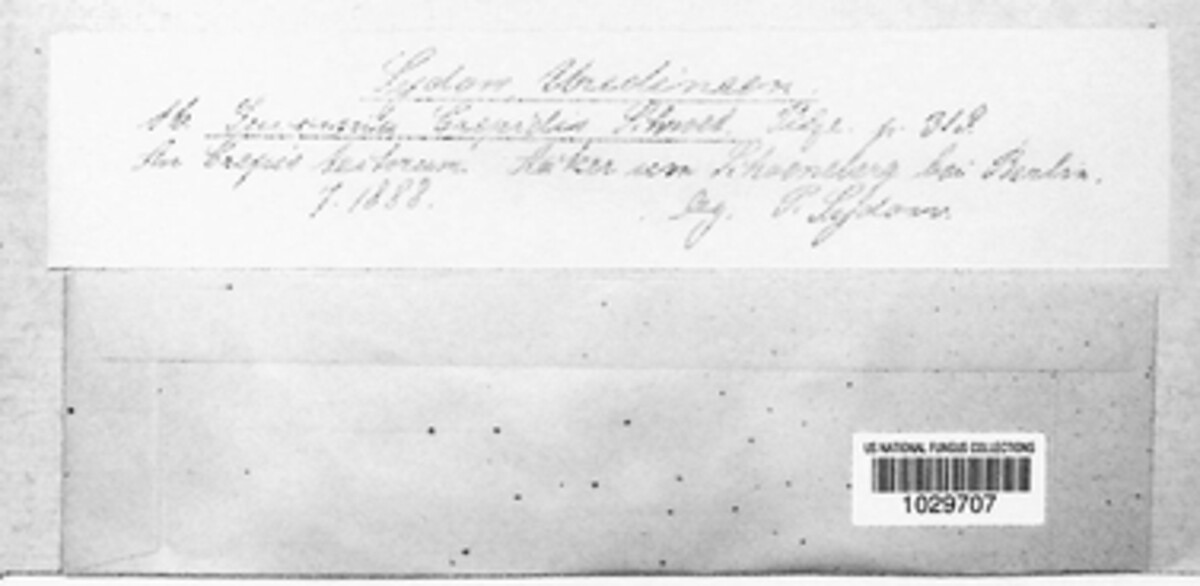 Sydow, Uredineen.
16. Puccinia Crepidis Schroet. Pilze. p. 319.
An Crepis tectorum. Aecker um Schoeneberg bei Berlin.
7. 1888. leg. P. Sydow.
US NATIONAL FUNGUS COLLECTIONS
1029707